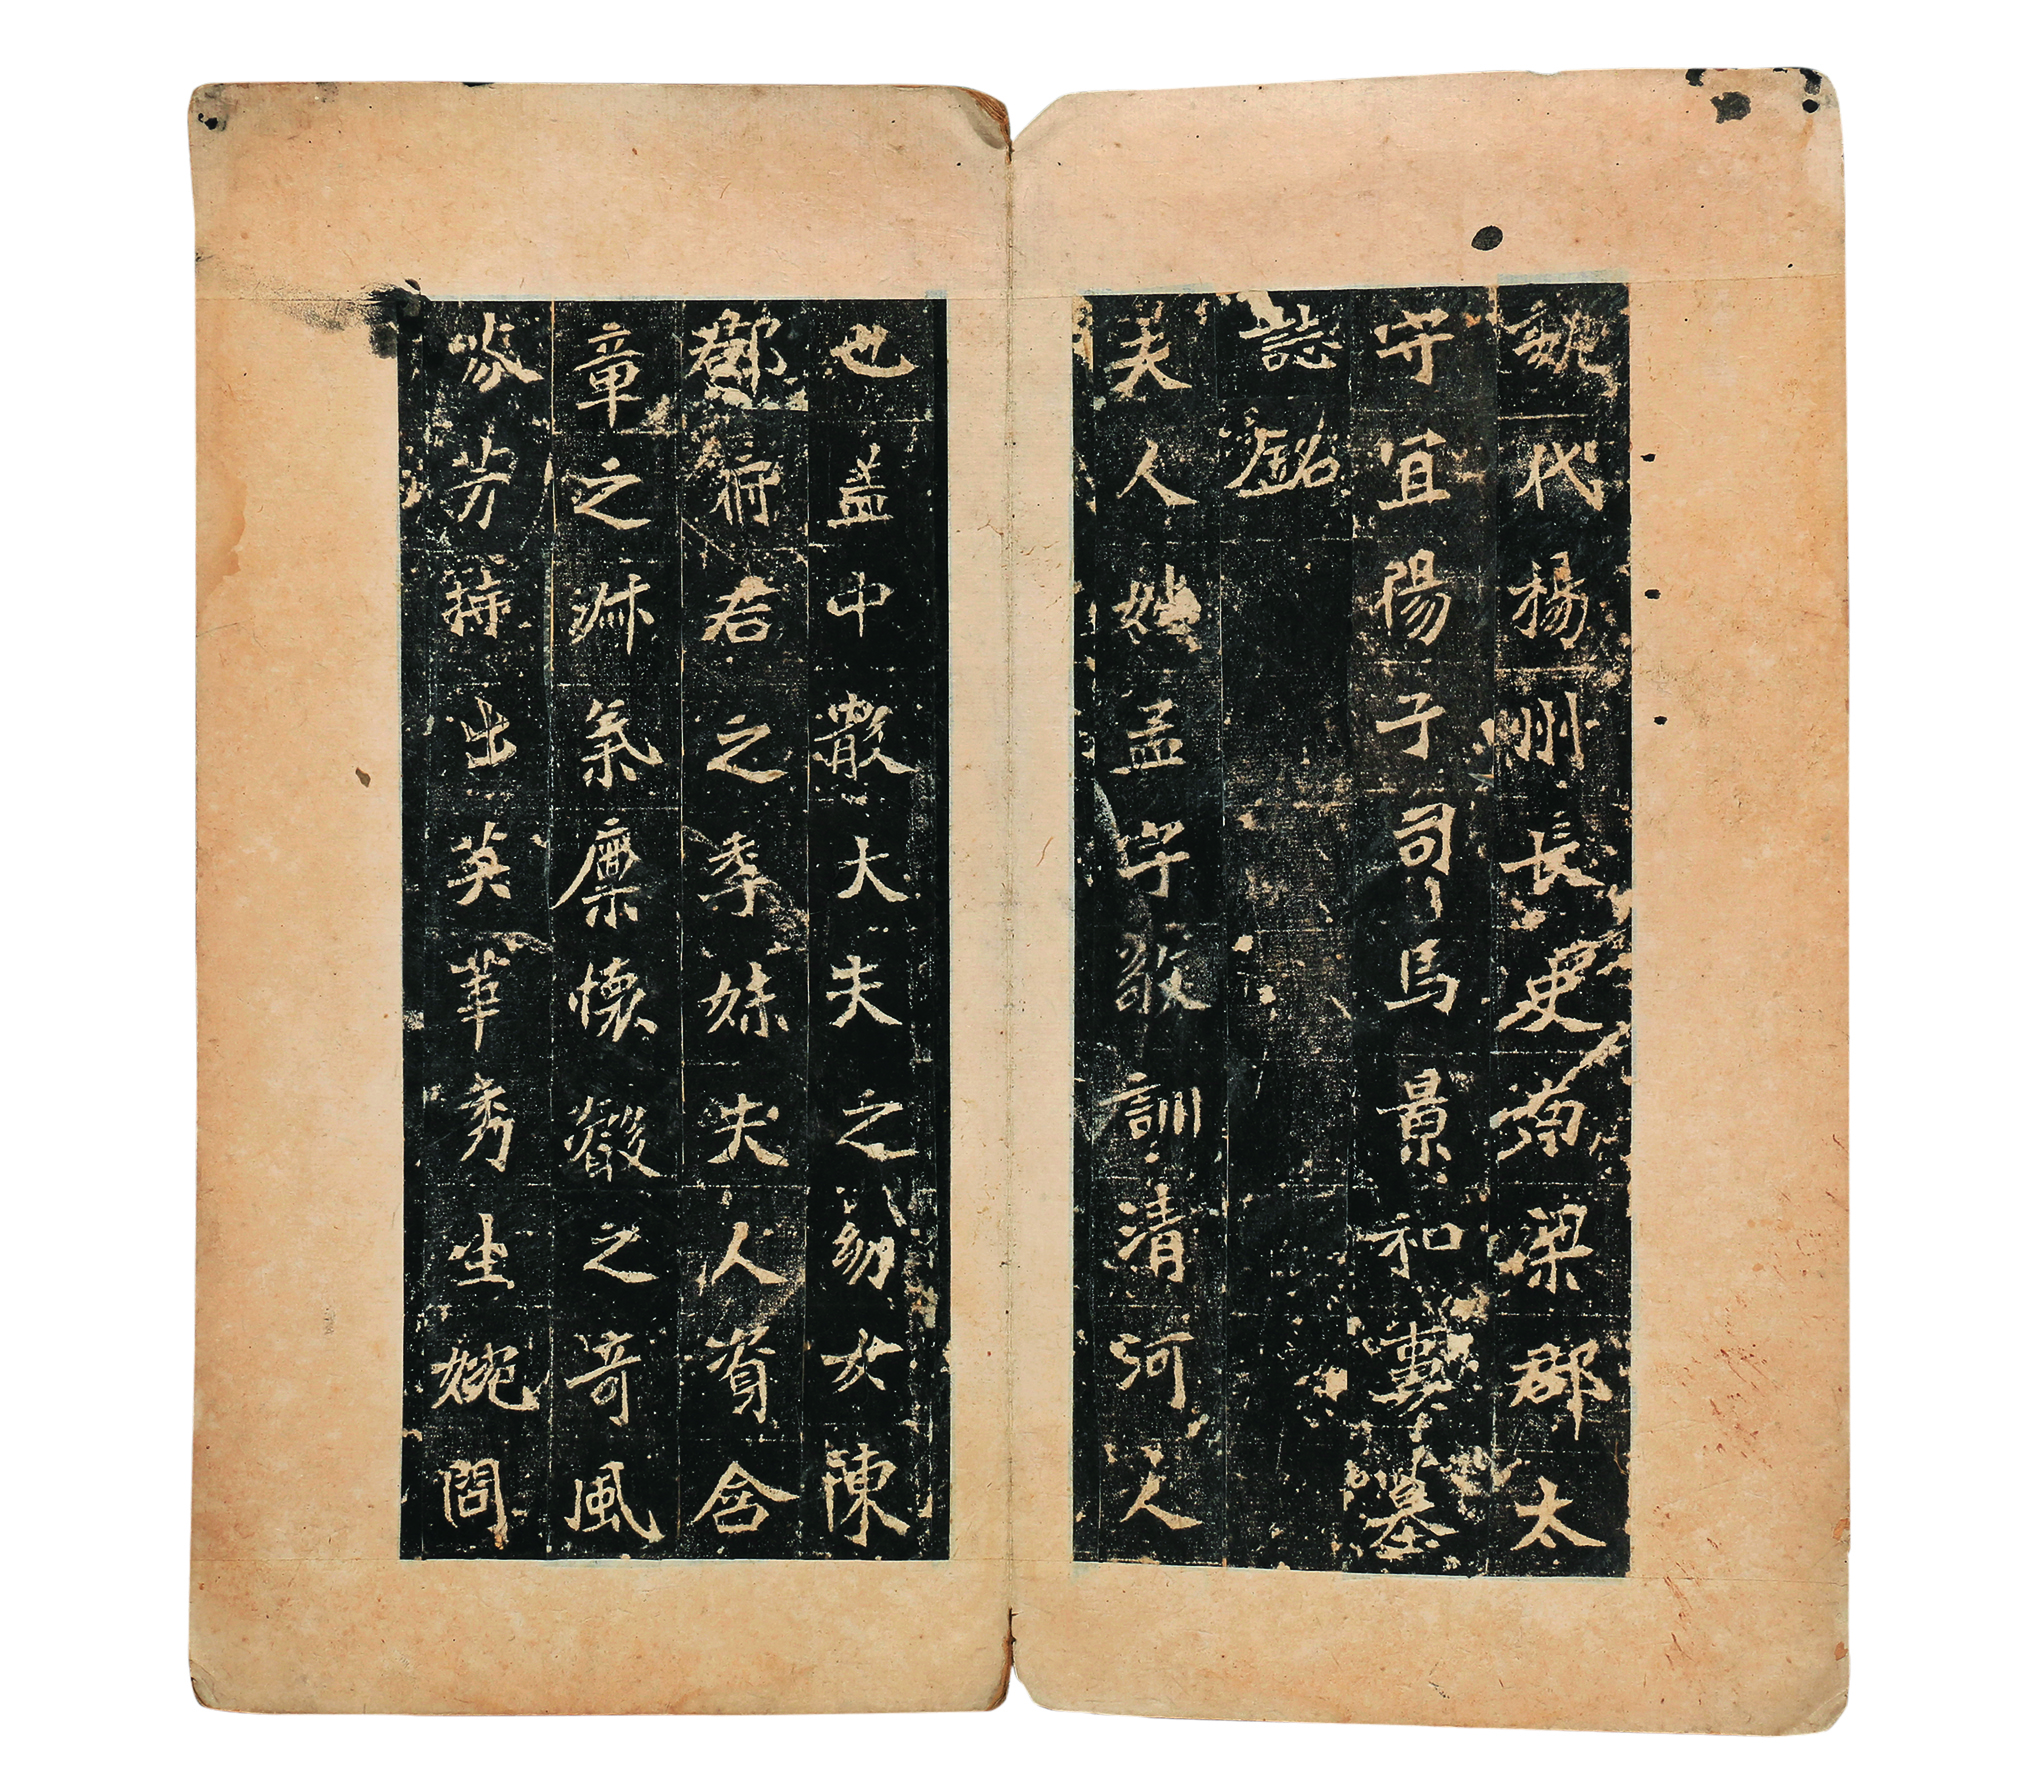 魏代揚州長史南梁郡太
守宜陽子司馬景和妻墓
誌銘
夫人姓孟字敬訓清河人
也盖中散大夫之幼女陳
郡府君之季妹夫人資含
章之淑氣稟懷叡之奇風
芬芳特出英華秀生婉問